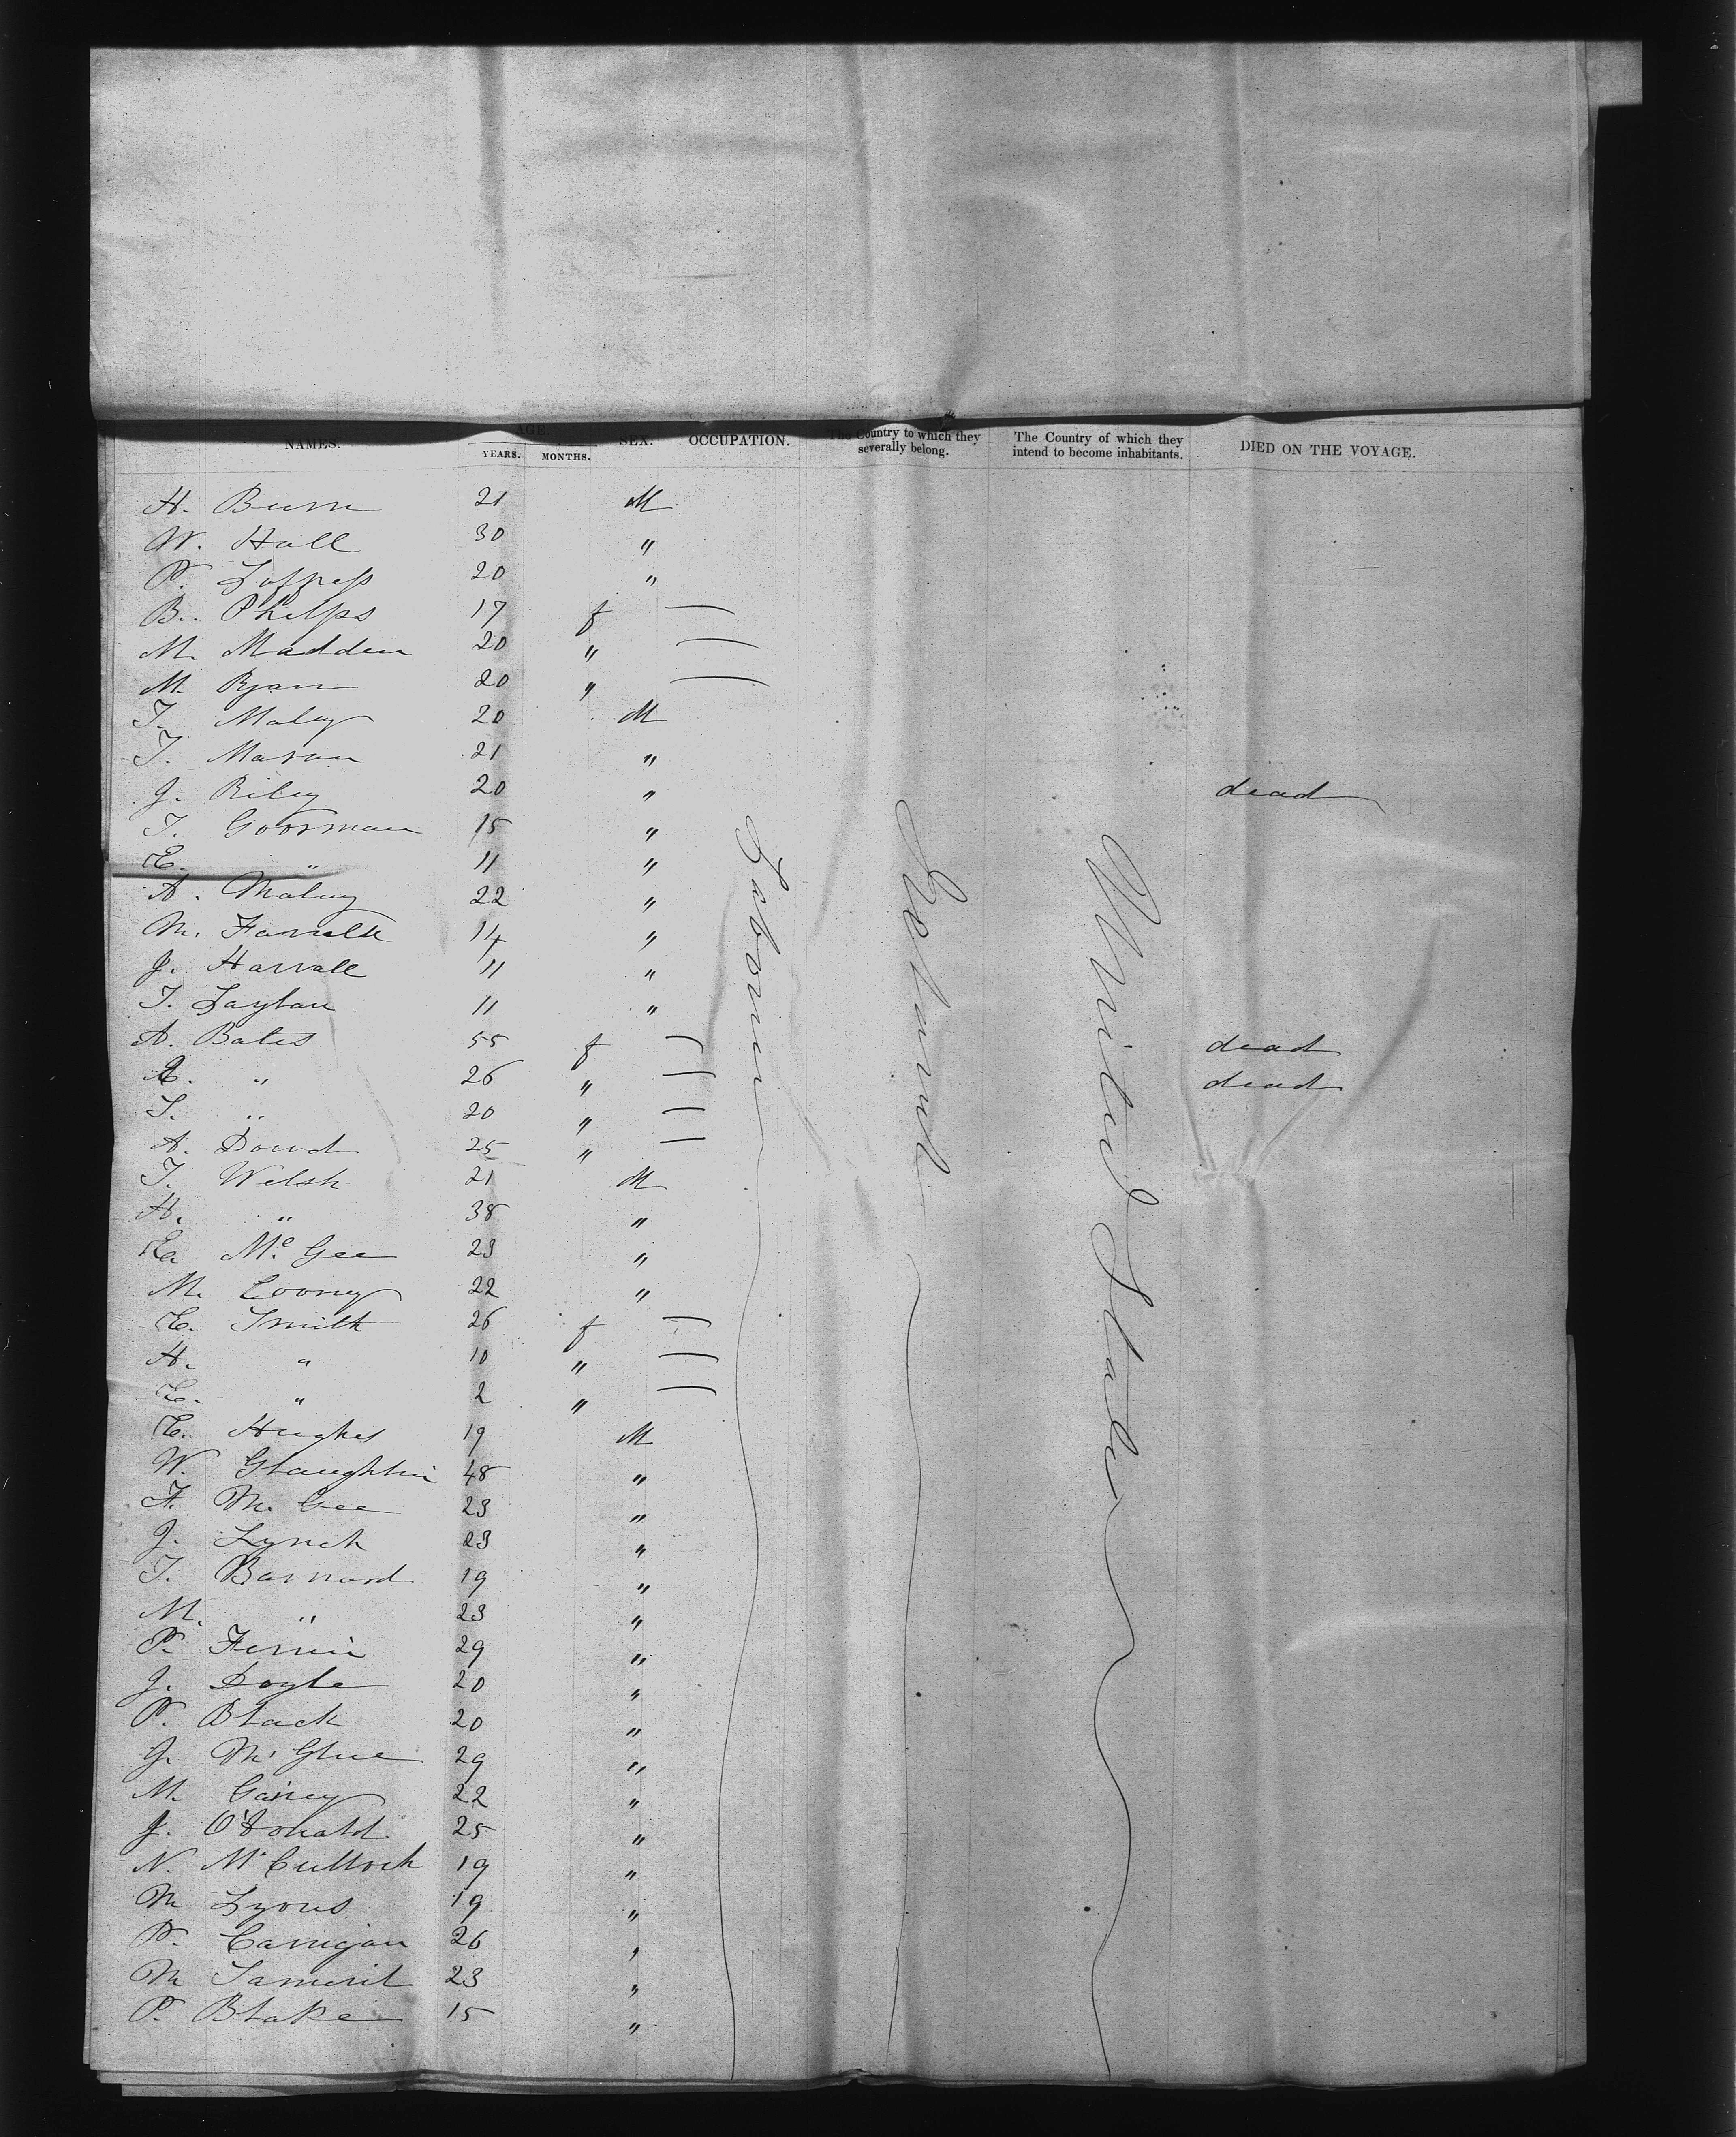 NAMES. AGE. SEX. OCCUPATION. The Country to which they severally belong. The Country of which they intend to become inhabitants. DIED ON THE VOYAGE.
YEARS. MONTHS.
H. Burn 21 M
W. Hall 30 "
P. 20 "
B. Phelps 17 f —
M. Madden 20 " —
M. Ryan 20 " —
T. Maley 20 M
T. Mason 21 "
J. Riley 20 " dead
T. Goorman 15 "
E. " 11 "
A. Maluy 22 "
M. Farrell 14 "
J. Harrall 11 "
T. Laytan 11 "
A. Bates 55 f — dead
" 26 " — dead
T. " 20 " —
A. Dowd 25 " —
T. Welsh 21 M
H. " 38 "
Mc. Gee 23 "
M. Coony 22 "
E. Smith 26 f —
H. " 10 " —
E. " 2 " —
E. Hughes 19 M
W. 48 "
F. M. Gee 23 "
J. Lynch 23 "
T. Barnard 19 "
M. " 23 "
P. 29 "
J. Doyle 20 "
P. Black 20 "
J. Mc Glue 29 "
M. Garrey 22 "
J. O'Donald 25 "
N. Mc Cullock 19 "
M Lyons 19 "
P. Carrigan 26 "
M 23 "
P. Blake 15 "
Laborers
Ireland
United States